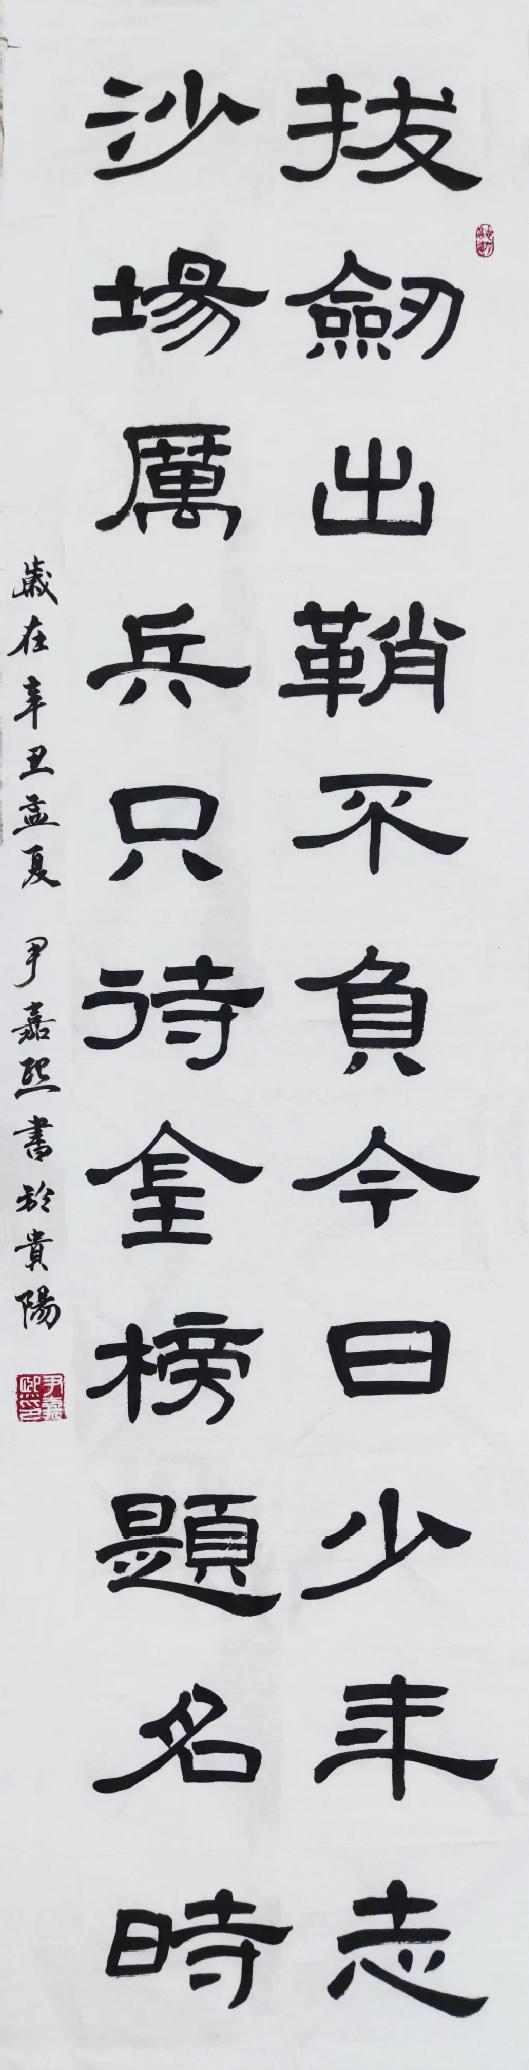 拔劒出鞘不負今日少年志
沙場厲兵只待金榜題名時
歲在辛丑孟夏 尹嘉熙書於貴陽
尹嘉熙印